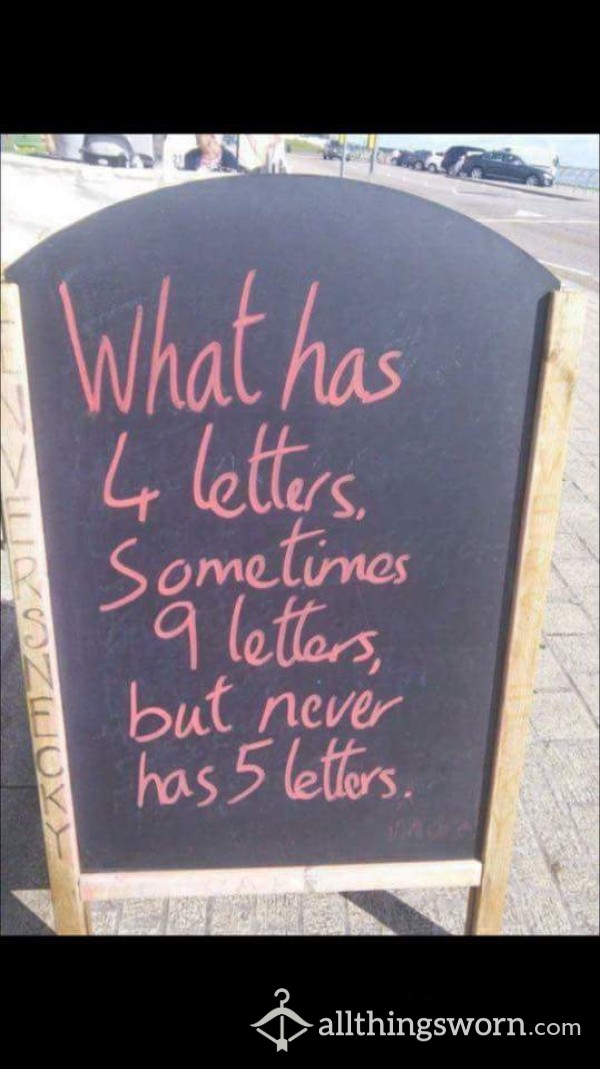 What has
4 letters,
Sometimes
9 letters,
but never
has 5 letters.
allthingsworn.com